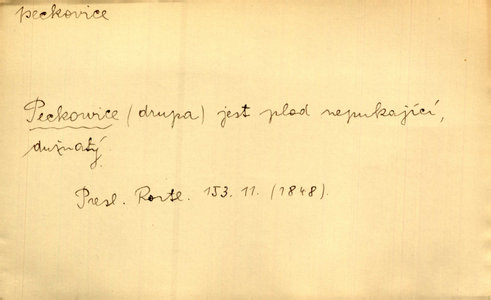 peckovice
Peckowice (drupa) jest plod nepukající,
dužnatý.
Presl. Rostl. 153. 11. (1848).